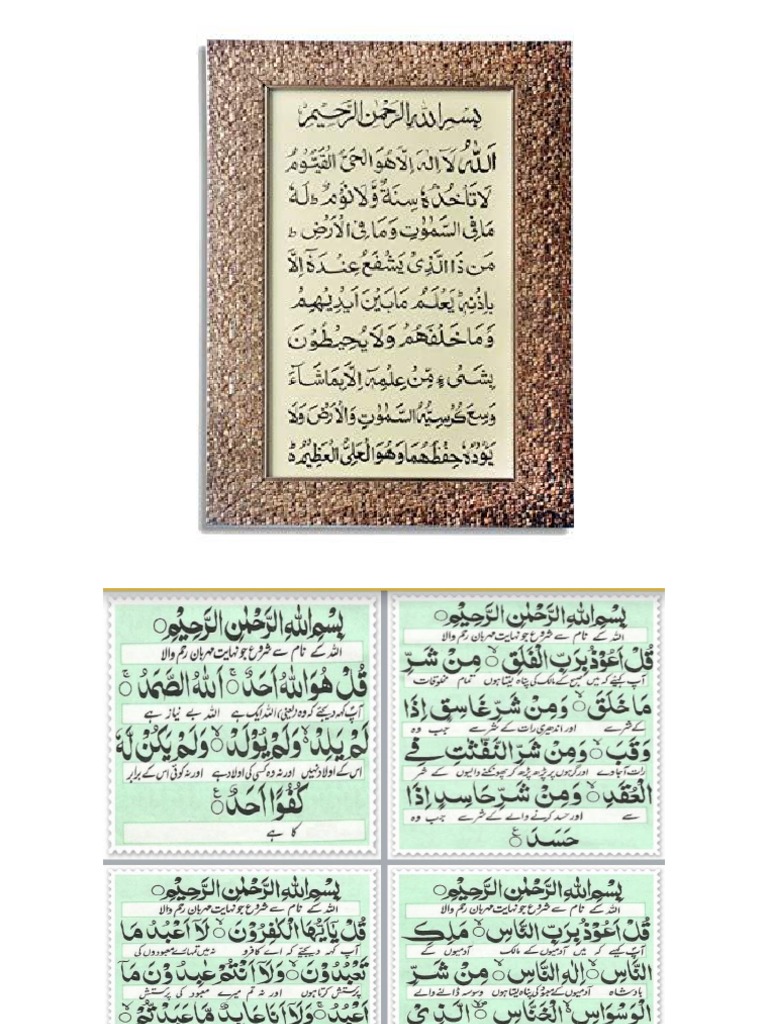 بِسْمِ اللهِ الرَّحْمٰنِ الرَّحِيْمِ
اَللهُ لَآ اِلٰهَ اِلَّا هُوَ الْحَيُّ الْقَيُّوْمُ
لَا تَاْخُذُهٗ سِنَةٌ وَّلَا نَوْمٌ ط لَهٗ
مَا فِي السَّمٰوٰتِ وَمَا فِي الْاَرْضِ ط
مَنْ ذَا الَّذِيْ يَشْفَعُ عِنْدَهٗٓ اِلَّا
بِاِذْنِهٖ يَعْلَمُ مَا بَيْنَ اَيْدِيْهِمْ
وَمَا خَلْفَهُمْ وَلَا يُحِيْطُوْنَ
بِشَىْءٍ مِّنْ عِلْمِهٖٓ اِلَّا بِمَا شَآءَ
وَسِعَ كُرْسِيُّهُ السَّمٰوٰتِ وَالْاَرْضَ وَلَا
يَوُدُهٗ حِفْظُهُمَا وَهُوَ الْعَلِيُّ الْعَظِيْمُ ط
بِسْمِ اللهِ الرَّحْمٰنِ الرَّحِيْمِ
اللہ کے نام سے شروع جو نہایت مہربان رحم والا
قُلْ هُوَ اللهُ اَحَدٌ ۚ اَللهُ الصَّمَدُ ۚ
آپ کہہ دیجئے کہ وہ (یعنی) اللہ ایک ہے اللہ بے نیاز ہے
لَمْ يَلِدْ وَلَمْ يُوْلَدْ وَلَمْ يَكُنْ لَّهٗ
اس کے اولاد نہیں اور نہ وہ کسی کی اولاد ہے اور نہ کوئی اس کے برابر
كُفُوًا اَحَدٌ
کا ہے
بِسْمِ اللهِ الرَّحْمٰنِ الرَّحِيْمِ
اللہ کے نام سے شروع جو نہایت مہربان رحم والا
قُلْ اَعُوْذُ بِرَبِّ الْفَلَقِ مِنْ شَرِّ
آپ کہیئے کہ میں صبح کے مالک کی پناہ لیتا ہوں تمام مخلوقات
مَا خَلَقَ وَمِنْ شَرِّ غَاسِقٍ اِذَا
کے شر سے اور اندھیری رات کے شر سے جب وہ
وَقَبَ وَمِنْ شَرِّ النَّفّٰثٰتِ فِي
رات آجاوے اور گرہوں پر پڑھ پڑھ کر پھونکنے والیوں کے شر
الْعُقَدِ وَمِنْ شَرِّ حَاسِدٍ اِذَا
سے اور حسد کرنے والے کے شر سے جب وہ
حَسَدَ
بِسْمِ اللهِ الرَّحْمٰنِ الرَّحِيْمِ
اللہ کے نام سے شروع جو نہایت مہربان رحم والا
قُلْ يٰٓاَيُّهَا الْكٰفِرُوْنَ لَآ اَعْبُدُ مَا
آپ کہہ دیجئے کہ اے کافرو نہ میں تمہارے معبودوں کی
تَعْبُدُوْنَ وَلَآ اَنْتُمْ عٰبِدُوْنَ مَآ
پرستش کرتا ہوں اور نہ تم میرے معبود کی پرستش
اَعْبُدُ وَلَآ اَنَا عَابِدٌ مَّا عَبَدْتُّمْ
بِسْمِ اللهِ الرَّحْمٰنِ الرَّحِيْمِ
اللہ کے نام سے شروع جو نہایت مہربان رحم والا
قُلْ اَعُوْذُ بِرَبِّ النَّاسِ مَلِكِ
آپ کہیئے کہ میں آدمیوں کے مالک آدمیوں کے
النَّاسِ اِلٰهِ النَّاسِ مِنْ شَرِّ
بادشاہ آدمیوں کے معبود کی پناہ لیتا ہوں وسوسہ ڈالنے والے
الْوَسْوَاسِ الْخَنَّاسِ الَّذِيْ